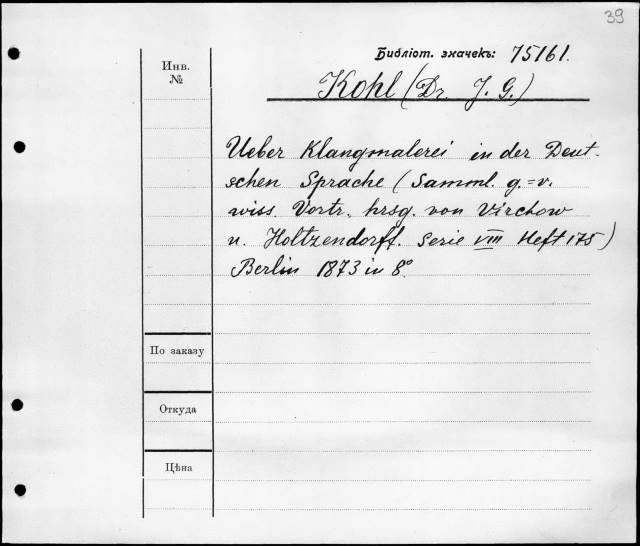 39
Библіот. значекъ: 75161.
Инв.
№
Kohl (Dr. J. G.)
Ueber Klangmalerei in der Deut-
schen Sprache (Samml. g.=v.
wiss. Vortr. hrsg. von Virchow
u. Holtzendorff. Serie VIII Heft 175)
Berlin 1873 in 8°.
По заказу
Откуда
Цѣна